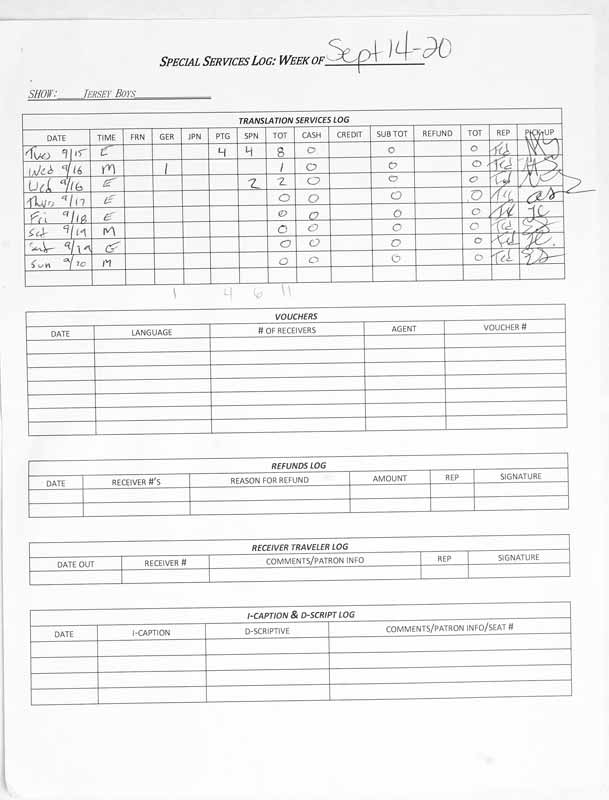 SPECIAL SERVICES LOG: WEEK OF Sept 14-20
SHOW: JERSEY BOYS
TRANSLATION SERVICES LOG
DATE TIME FRN GER JPN PTG SPN TOT CASH CREDIT SUB TOT REFUND TOT REP PICK-UP
Tues 9/15 E 4 4 8 0 0 0 Ted
Wed 9/16 M 1 1 0 0 0 Ted
Wed 9/16 E 2 2 0 0 0 Ted
Thurs 9/17 E 0 0 0 0
Fri 9/18 E 0 0 0 0
Sat 9/19 M 0 0 0 0 Ted
Sat 9/19 E 0 0 0 0 Ted
Sun 9/20 M 0 0 0 0 Ted
1 4 6 11
VOUCHERS
DATE LANGUAGE # OF RECEIVERS AGENT VOUCHER #
REFUNDS LOG
DATE RECEIVER #'S REASON FOR REFUND AMOUNT REP SIGNATURE
RECEIVER TRAVELER LOG
DATE OUT RECEIVER # COMMENTS/PATRON INFO REP SIGNATURE
I-CAPTION & D-SCRIPT LOG
DATE I-CAPTION D-SCRIPTIVE COMMENTS/PATRON INFO/SEAT #